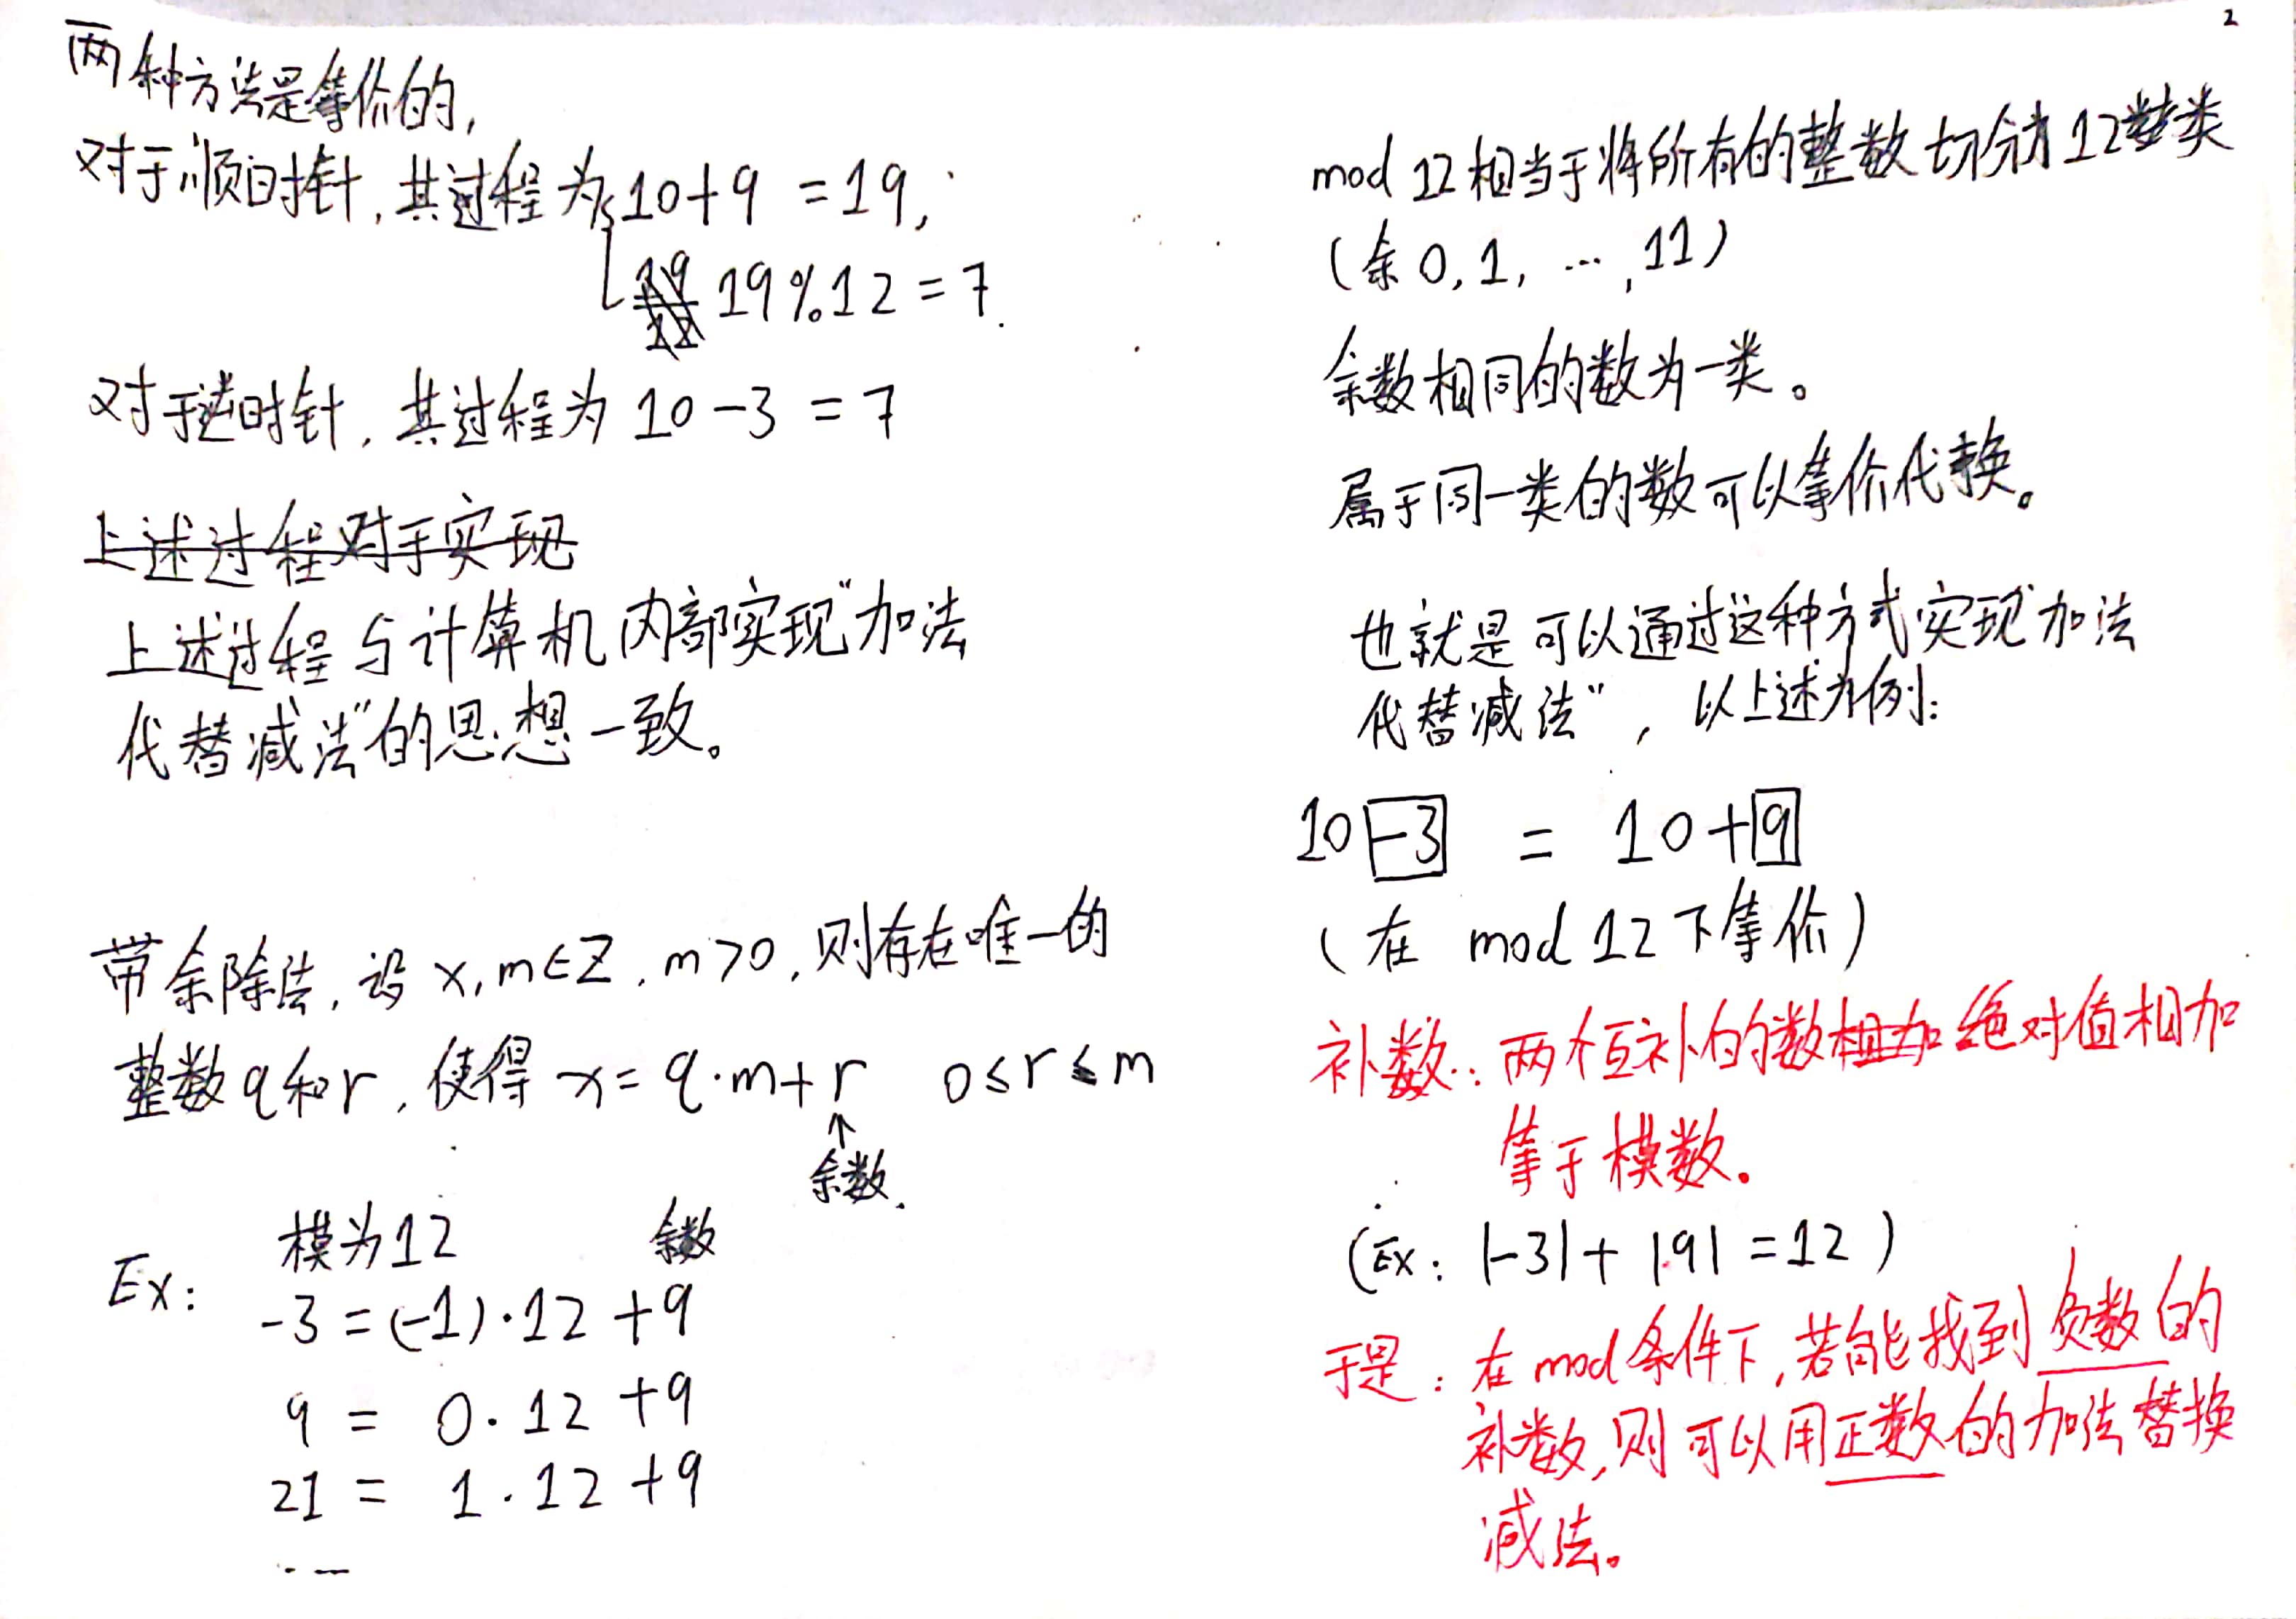 2
两种方法是等价的,
对于顺时针,其过程为 10+9 =19,
19%12=7.
对于逆时针,其过程为 10-3 =7
上述过程对于实现
上述过程与计算机内部实现"加法
代替减法"的思想一致。
带余除法,设 x,m∈Z,m>0,则存在唯一的
整数q和r,使得 x=q·m+r 0≤r≤m
↑
余数.
模为12 余数
Ex: -3=(-1)·12+9
9 = 0·12+9
21 = 1·12+9
...
mod 12相当于将所有的整数切分为12类
(余0,1,…,11)
余数相同的数为一类。
属于同一类的数可以等价代换。
也就是可以通过这种方式实现"加法
代替减法",以上述为例:
10-3 = 10+9
(在 mod 12下等价)
补数:两个互补的数相加绝对值相加
等于模数。
(Ex: |-3|+|9|=12)
于是:在mod条件下,若能找到负数的
补数,则可以用正数的加法替换
减法。